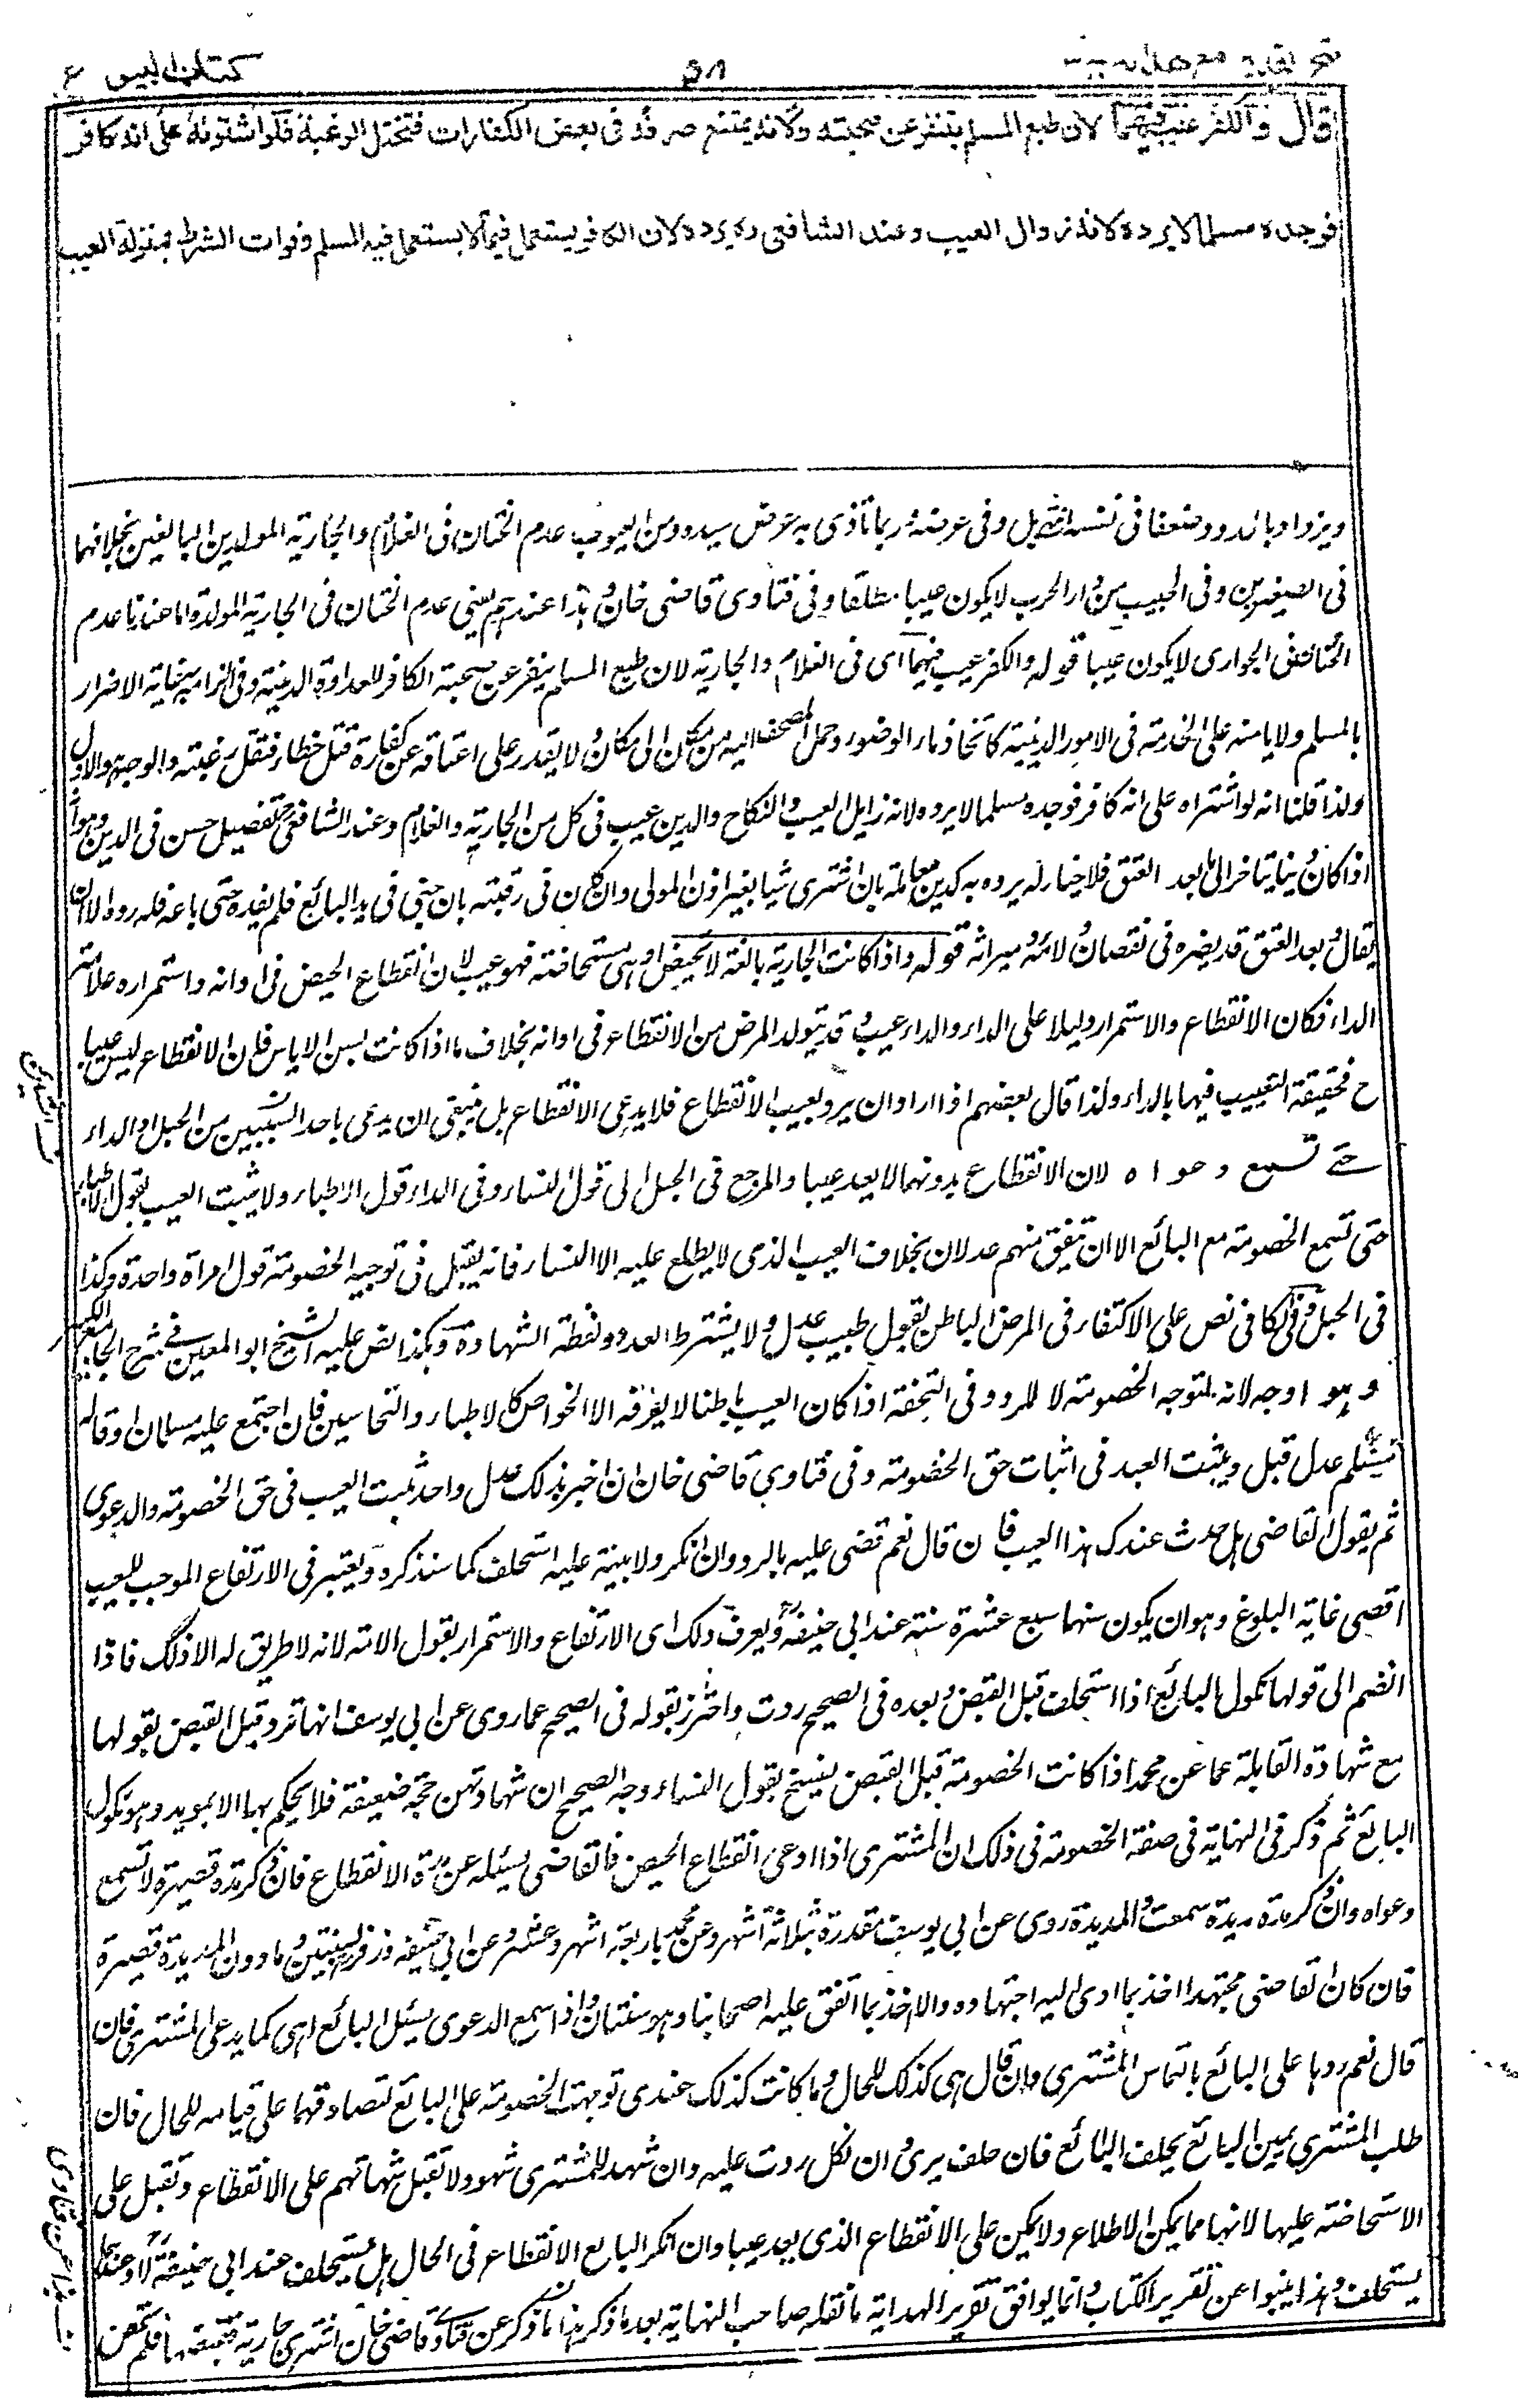 فتح القدير مع هدايه
٥٨
كتاب البيوع
قال والكفر عيب فيهما لان طبع المسلم يتنفر عن صحبته ولانه يمتنع صرفه فى بعض الكفارات فتختل الرغبة فلو اشتراه على انه كافر
فوجده مسلما لا يرده لانه زوال العيب وعند الشافعى رح يرده لان الكافر يستعمل فيما لا يستعمل فيه المسلم وفوات الشرط بمنزلة العيب
ويزداد بالدوود ضعفا فى نفسه وفى عرضه ربما تاذى به عرض سيده ومن العيوب عدم الختان فى الغلام والجارية المولدين البالغين بخلافهما
فى الصغيرين وفى الجليب من دار الحرب لا يكون عيبا مطلقا وفى فتاوى قاضى خان هذا عندهم يعنى عدم الختان فى الجارية المولدة اما عندنا عدم
الختان فى الجوارى لا يكون عيبا قوله والكفر عيب فيهما اى فى الغلام والجارية لان طبع المسلم ينفر عن صحبة الكافر للعداوة الدينية وفى الزامه به غاية الاضرار
بالمسلم ولا يامنه على الخدمة فى الامور الدينية كاتخاذ ماء الوضوء وحمل المصحف اليه من مكان الى مكان ولا يقدر على اعتاقه عن كفارة قتل خطاء فتقل رغبته والوجه والاول
ولذا قلنا انه لو اشتراه على انه كافر فوجده مسلما لا يرده لانه زايل العيب والنكاح والدين عيب فى كل من الجارية والغلام وعند الشافعى تفصيل حسن فى الدين وهو
اذا كان دينا يتاخر الى ما بعد العتق فلا خيار له يرده به كدين معاملة بان اشترى شيا بغير اذن المولى وان كان فى رقبته بان جنى فى يد البائع فلم يفده حتى باعه فله رده الا ان
يقال بعد العتق قد يضره فى نقصان ولائه وميراثه قوله واذا كانت الجارية بالغة لا تحيض او هى مستحاضة فهو عيب لان انقطاع الحيض فى اوانه واستمراره علامة
الداء فكان الانقطاع والاستمرار دليلا على الداء والداء عيب وقد يتولد المرض من الانقطاع فى اوانه بخلاف ما اذا كانت بسن الاياس فان الانقطاع ليس عيبا
ح فحقيقة التعييب فيها بالداء ولذا قال بعضهم اذا اراد ان يرد بعيب الانقطاع فلا يدعى الانقطاع بل ينبغى ان يدعى باحد السببين من الحبل والداء
حتى تسمع دعواه لان الانقطاع بدونهما لا يعد عيبا والمرجع فى الحبل الى قول النساء وفى الداء قول الاطباء ولا يثبت العيب بقول الاطباء
حتى تسمع الخصومة مع البائع الا ان يتفق منهم عدلان بخلاف العيب الذى لا يطلع عليه الا النساء فانه يقبل فى توجيه الخصومة قول امراة واحدة وكذا
فى الحبل وفى الكافى نص على الاكتفاء فى المرض الباطن بقول طبيب عدل ولا يشترط العدد ولفظة الشهادة وهكذا نص عليه الشيخ ابو المعين فى شرح الجامع الكبير
وهو اوجه لانه لتوجه الخصومة لا للرد وفى التحفة اذا كان العيب باطنا لا يعرفه الا الخواص كالاطباء والنخاسين فان اجتمع عليه مسلمان او قاله
مسلم عدل قبل ويثبت العيب فى اثبات حق الخصومة وفى فتاوى قاضى خان ان اخبر بذلك عدل واحد ثبت العيب فى حق الخصومة والدعوى
ثم يقول القاضى هل حدث عندك هذا العيب فان قال نعم قضى عليه بالرد وان انكر ولا بينة عليه استحلف كما سنذكره ويعتبر فى الارتفاع الموجب للعيب
اقصى غاية البلوغ وهو ان يكون سنها سبع عشرة سنة عند ابى حنيفة رح ويعرف ذلك اى الارتفاع والاستمرار بقول الامة لانه لا طريق له الا ذلك فاذا
انضم الى قولها نكول البائع اذا استحلف قبل القبض وبعده فى الصحيح ردت واحترز بقوله فى الصحيح عما روى عن ابى يوسف انها ترد قبل القبض بقولها
مع شهادة القابلة عما عن محمد اذا كانت الخصومة قبل القبض يفسخ بقول النساء وجه الصحيح ان شهادتهن حجة ضعيفة فلا يحكم بها الا بمويد وهو نكول
البايع ثم ذكر فى النهاية فى صفة الخصومة فى ذلك ان المشترى اذا ادعى انقطاع الحيض فالقاضى يسئله عن مدة الانقطاع فان ذكر مدة قصيرة لا تسمع
دعواه وان ذكر مدة مديدة سمعت والمديدة روى عن ابى يوسف مقدرة بثلاثة اشهر وعن محمد باربعة اشهر وعشر وعن ابى حنيفة وزفر بسنتين وما دون المديدة قصيرة
فان كان القاضى مجتهدا اخذ بما ادى اليه اجتهاده والا اخذ بما اتفق عليه اصحابنا وهو سنتان واذا سمع الدعوى يسئل البائع اهى كما يدعى المشترى فان
قال نعم ردها على البائع بالتماس المشترى وان قال هى كذلك للحال وما كانت كذلك عندى توجهت الخصومة على البائع لتصادقهما على قيامه للحال فان
طلب المشترى يمين البائع يحلف البائع فان حلف برئ وان نكل ردت عليه وان شهد للمشترى شهود لا تقبل شهاتهم على الانقطاع وتقبل على
الاستحاضة عليها لانها مما يمكن الاطلاع ولا يمكن على الانقطاع الذى يعد عيبا وان انكر البايع الانقطاع فى الحال هل يستحلف عند ابى حنيفة لا وعندهما
يستحلف وهذا ينبوا عن تقرير الكتاب وانما يوافق تقرير الهداية ما نقله صاحب النهاية بعد ما ذكر هذا ما ذكر عن فتاوى قاضى خان اشترى جارية فقبضها فلم تحض